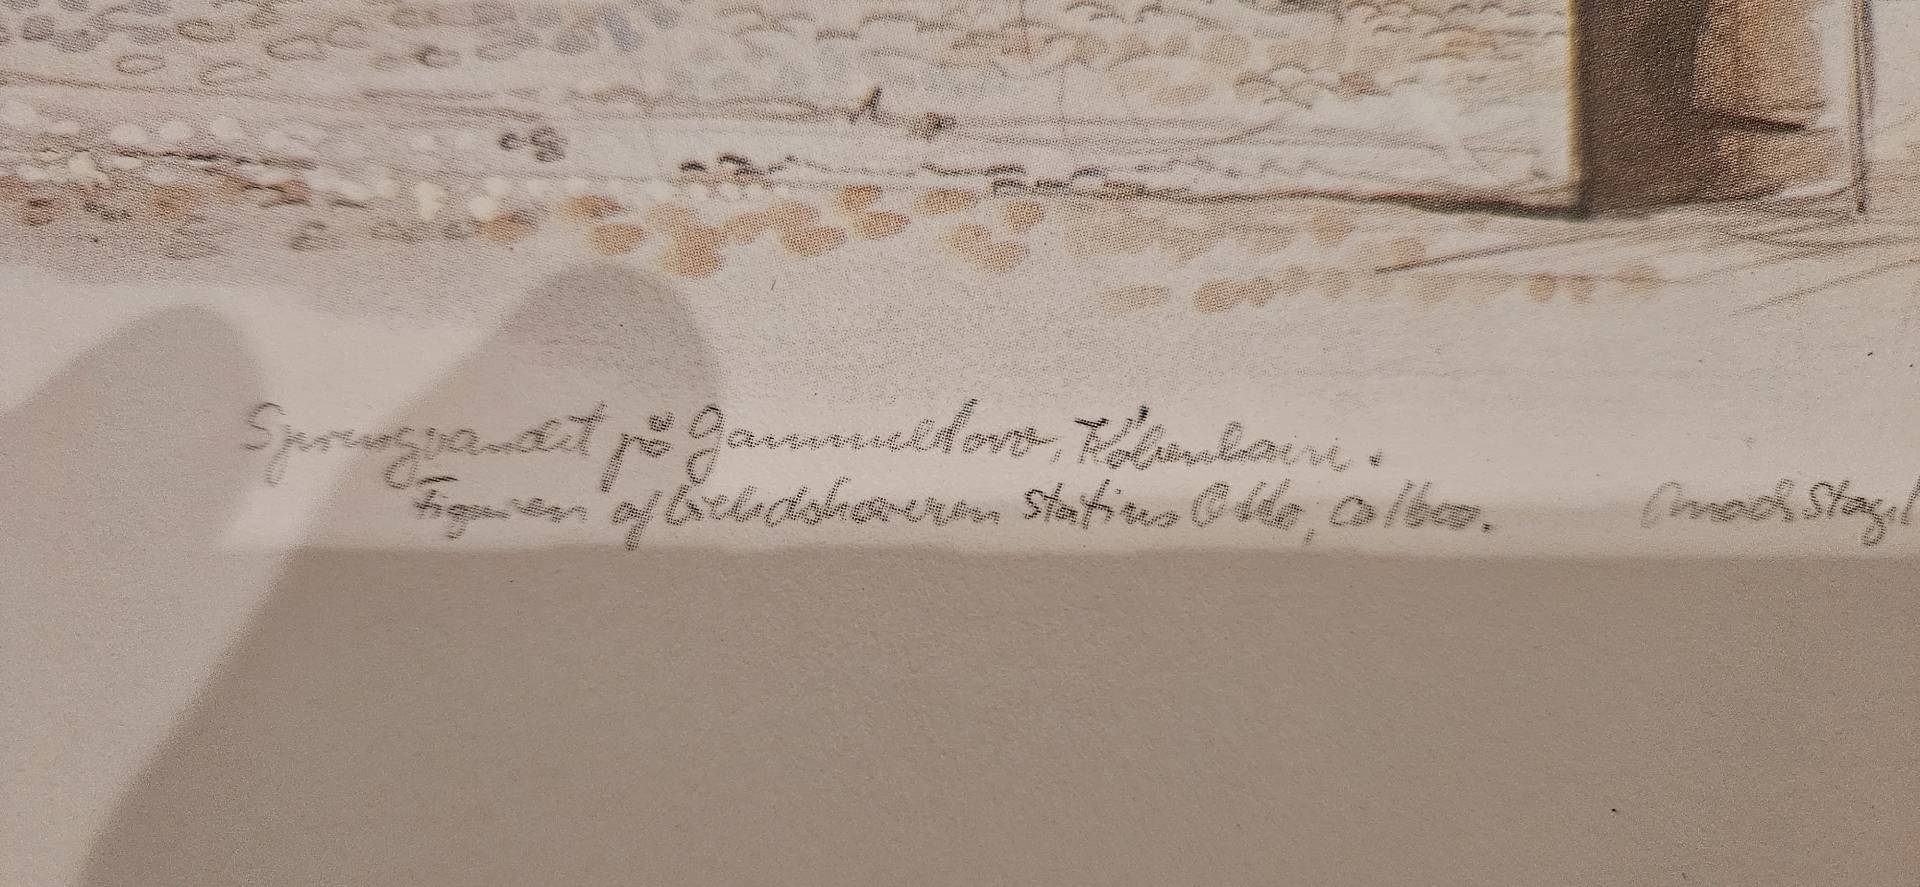 Springvandet på Gammeltorv, København.
Figuren af billedskæreren Statius Otto, ca 1600.
Mads Stage